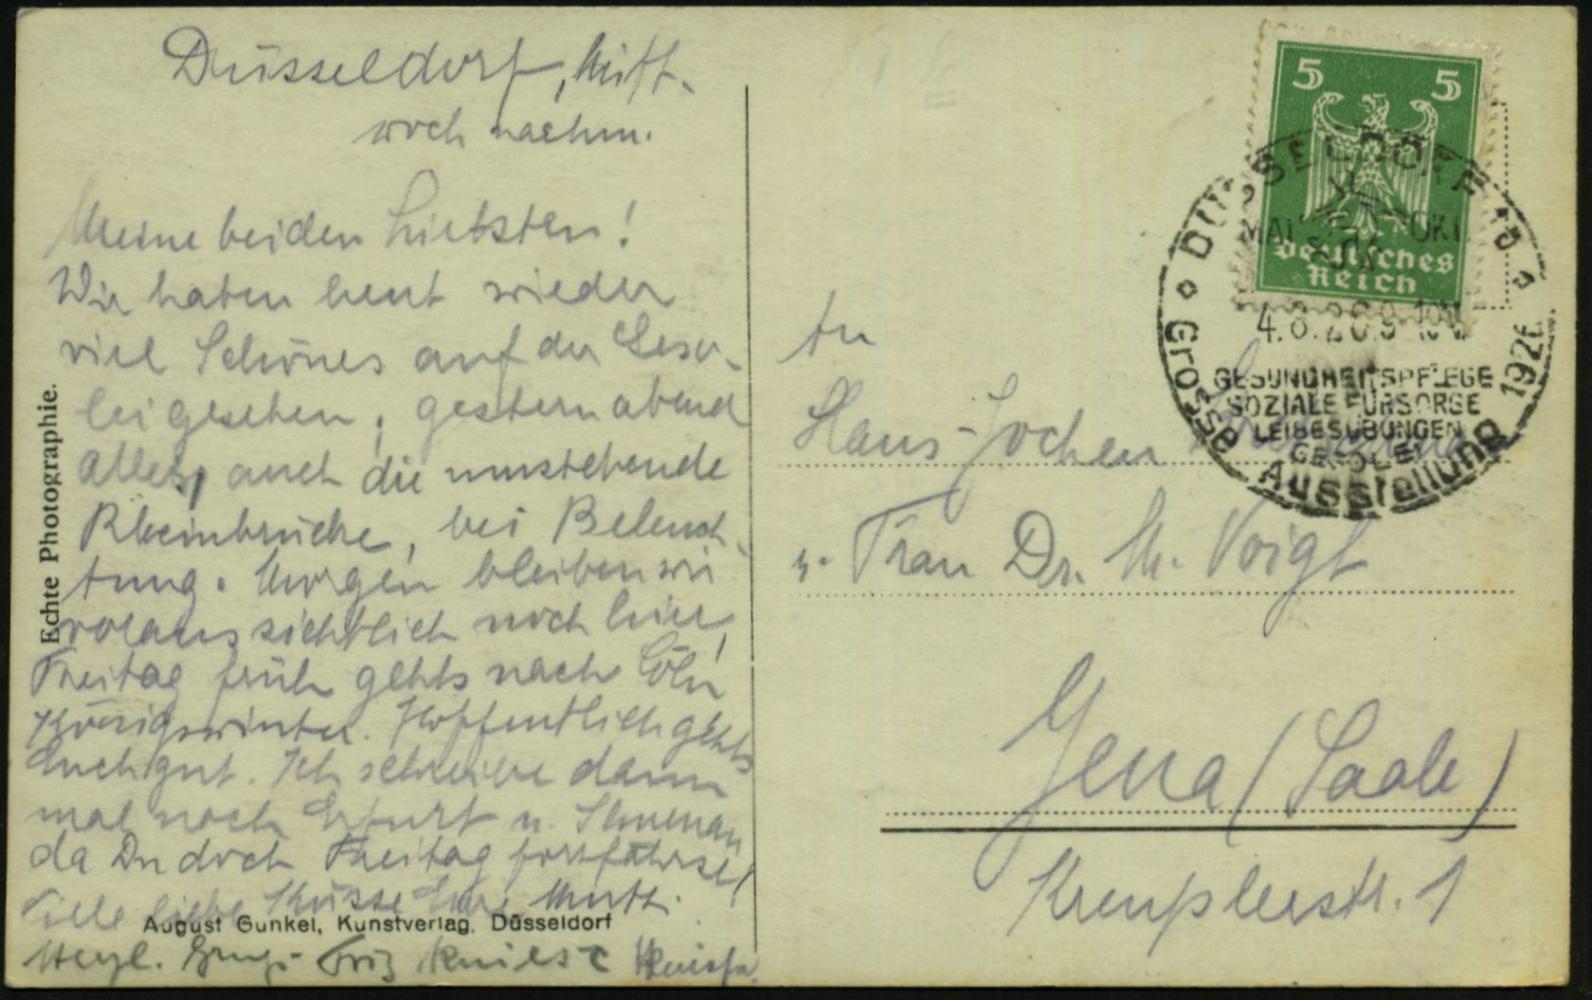 Düsseldorf, Mitt-
woch nachm.
Meine beiden Liebsten!
Wir haben heut wieder
viel Schönes auf der Gesei-
lei gesehen, gestern abend
alles, auch die umstehende
Rheinbrücke, bei Beleuch-
tung. Morgen bleiben wir
voraussichtlich noch hier,
Freitag früh gehts nach Cöln
Königswinter. Hoffentlich gehts
Euch gut. Ich schreibe dann
mal nach Erfurt u. Ilmenau
da Du doch Freitag fortfährst!
Viele liebe Küsse Eure Mutti.
Herzl. Fritz
Echte Photographie.
August Gunkel, Kunstverlag, Düsseldorf
5 5
Deutsches
Reich
DÜSSELDORF
MAI OKT
GESUNDHEITSPFLEGE
SOZIALE FÜRSORGE
LEIBESÜBUNGEN
GESOLEI
Grosse Ausstellung 1926
An
Hans-Jochen
u. Frau Dr. M. Voigt
Jena (Saale)
1